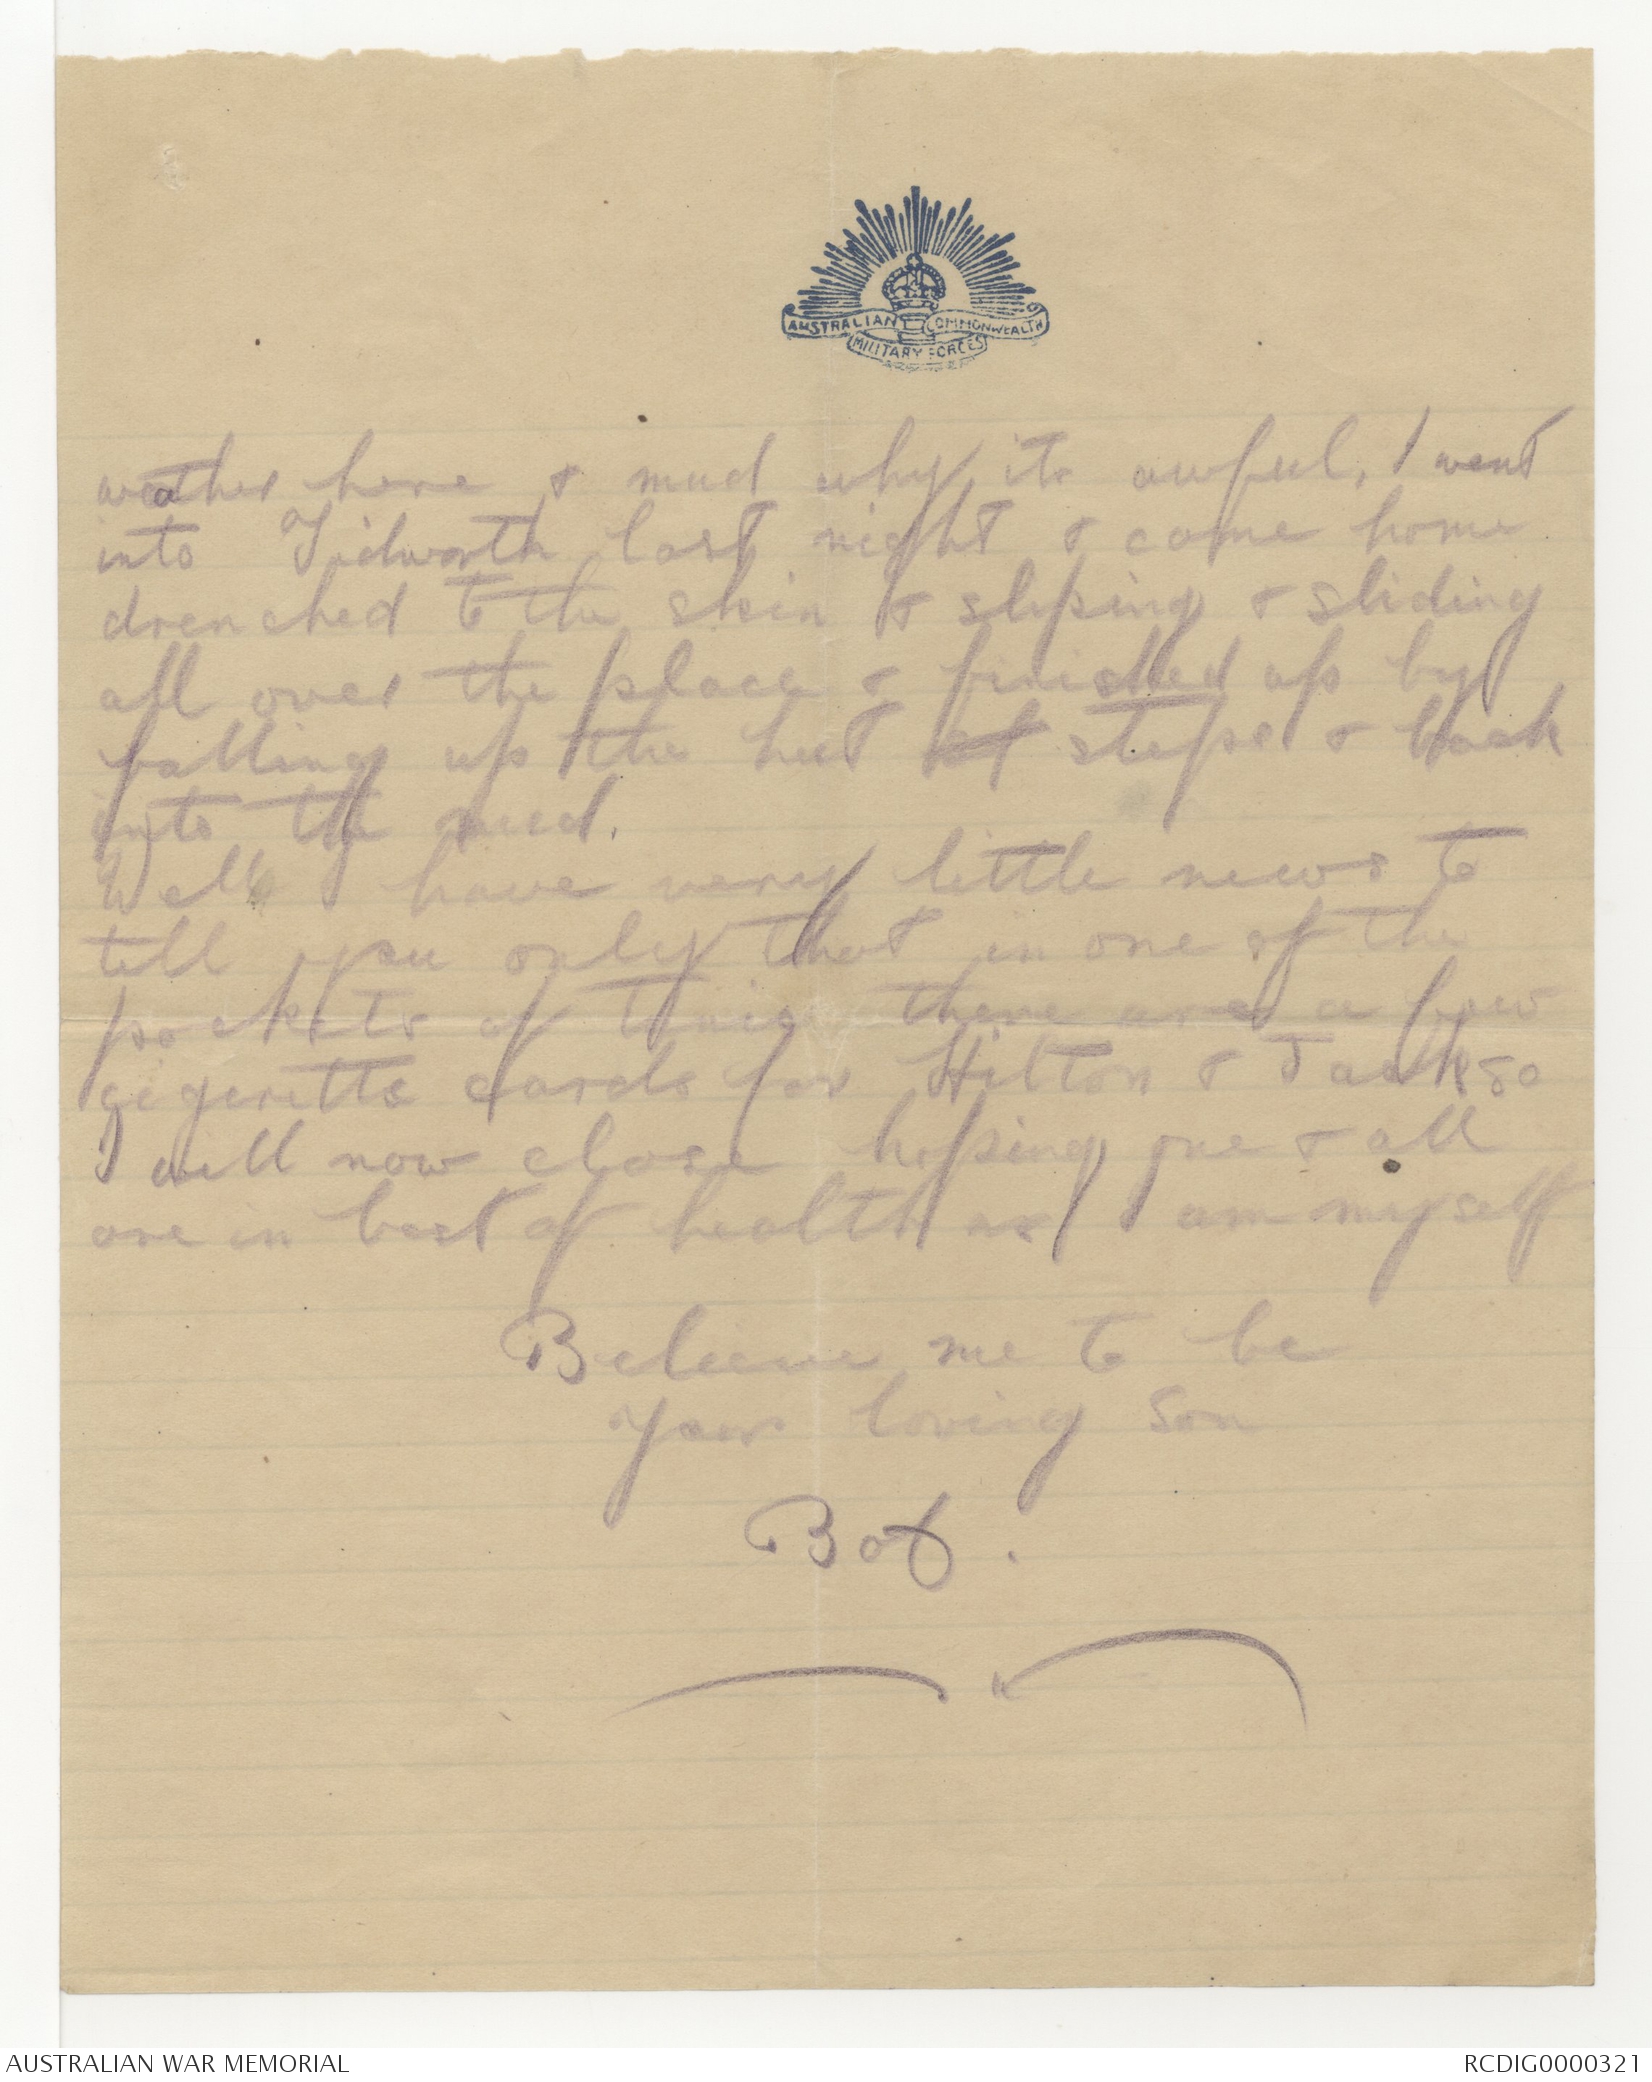 AUSTRALIAN COMMONWEALTH
MILITARY FORCES
weather here & mud why its awful, I went
into Tidworth last night & came home
drenched to the skin & sliping & sliding
all over the place & finished up by
falling up the hut steps & back
into the mud.
Well I have very little news to
tell you only that in one of the
pockets of there are a few
cigeretts cards for Hilton & Jack so
I will now close hoping one & all
are in best of health as I am myself
Believe me to be
Your loving Son
Bob.
AUSTRALIAN WAR MEMORIAL
RCDIG0000321